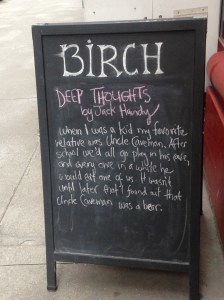 BIRCH
DEEP THOUGHTS
by Jack Handy
When I was a kid my favorite
relative was Uncle Caveman. After
school we'd all go play in his cave,
and every once in a while he
would eat one of us. It wasn't
until later that I found out that
Uncle Caveman was a bear.